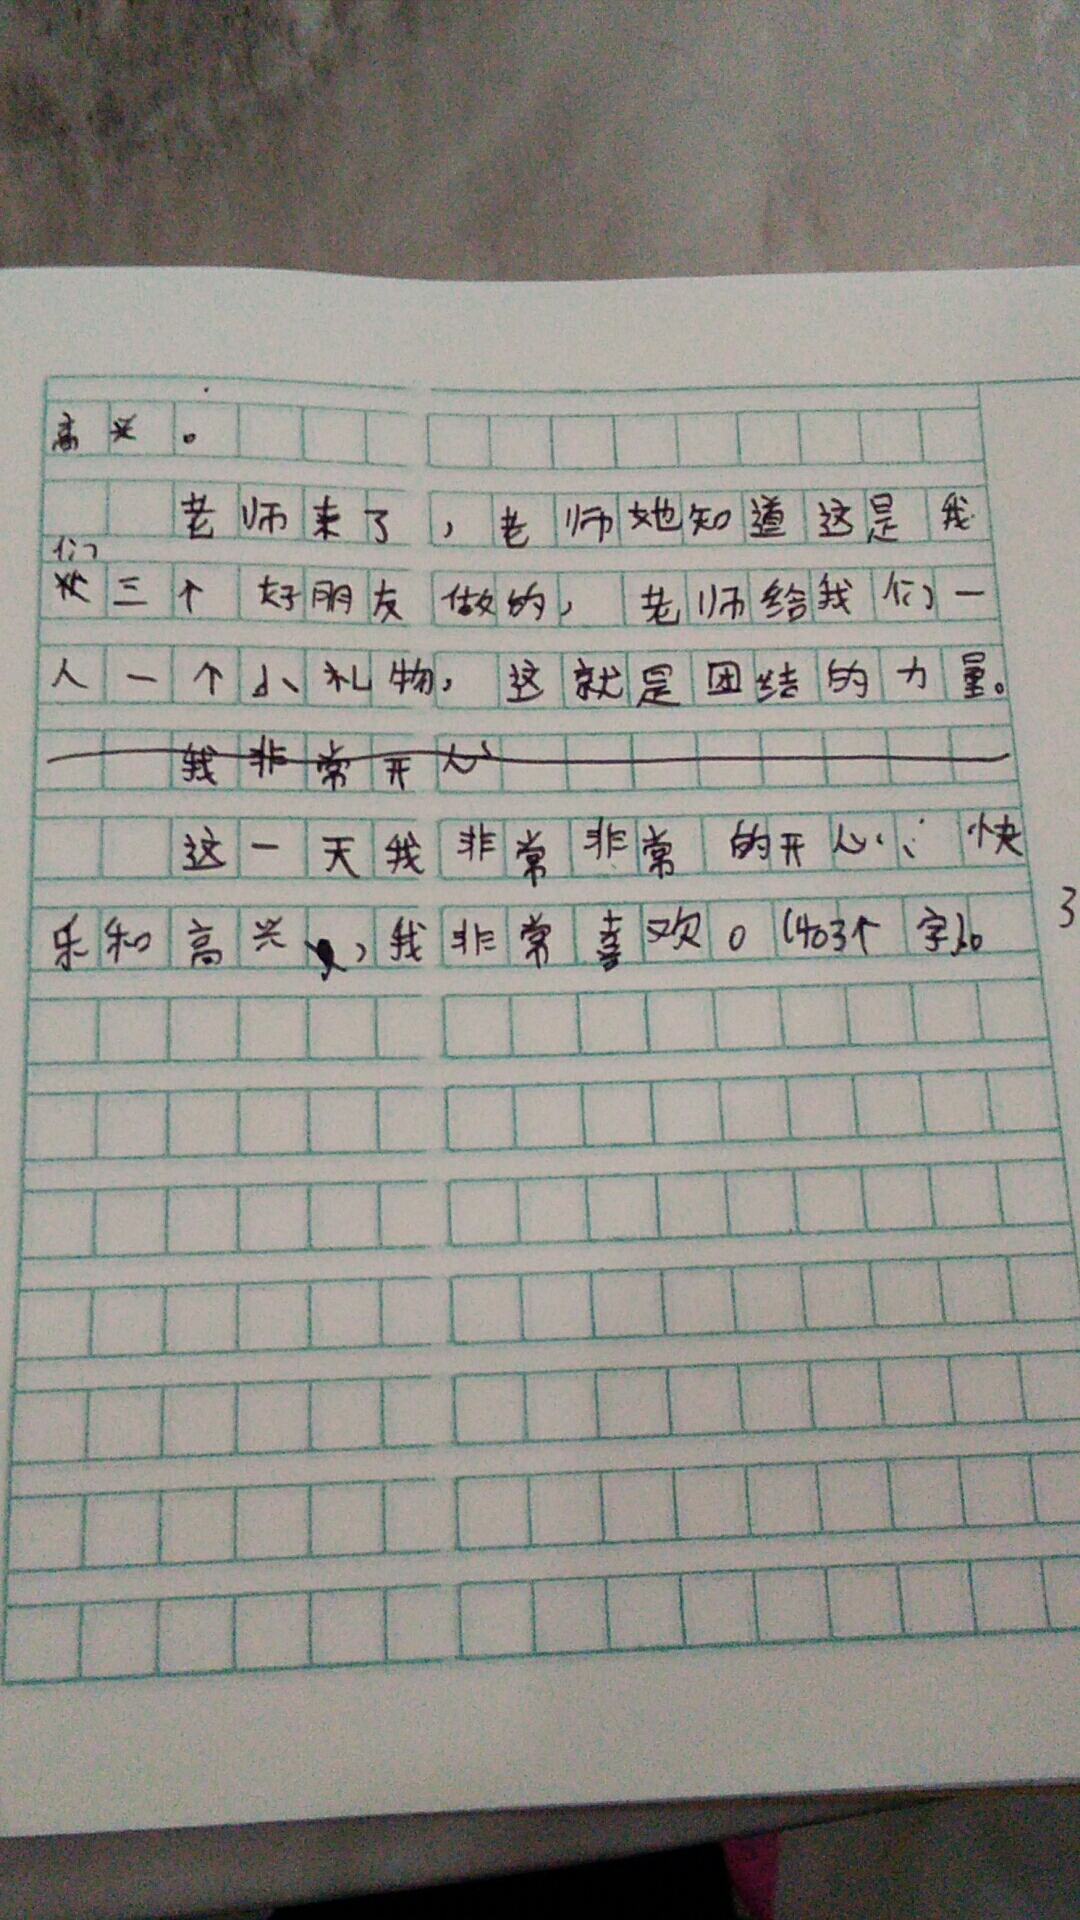 高兴。
老师来了，老师她知道这是我
们三个好朋友做的，老师给我们一
人一个小礼物，这就是团结的力量。
我非常开心
这一天我非常非常的开心、快
乐和高兴，我非常喜欢。(403个字)。
3